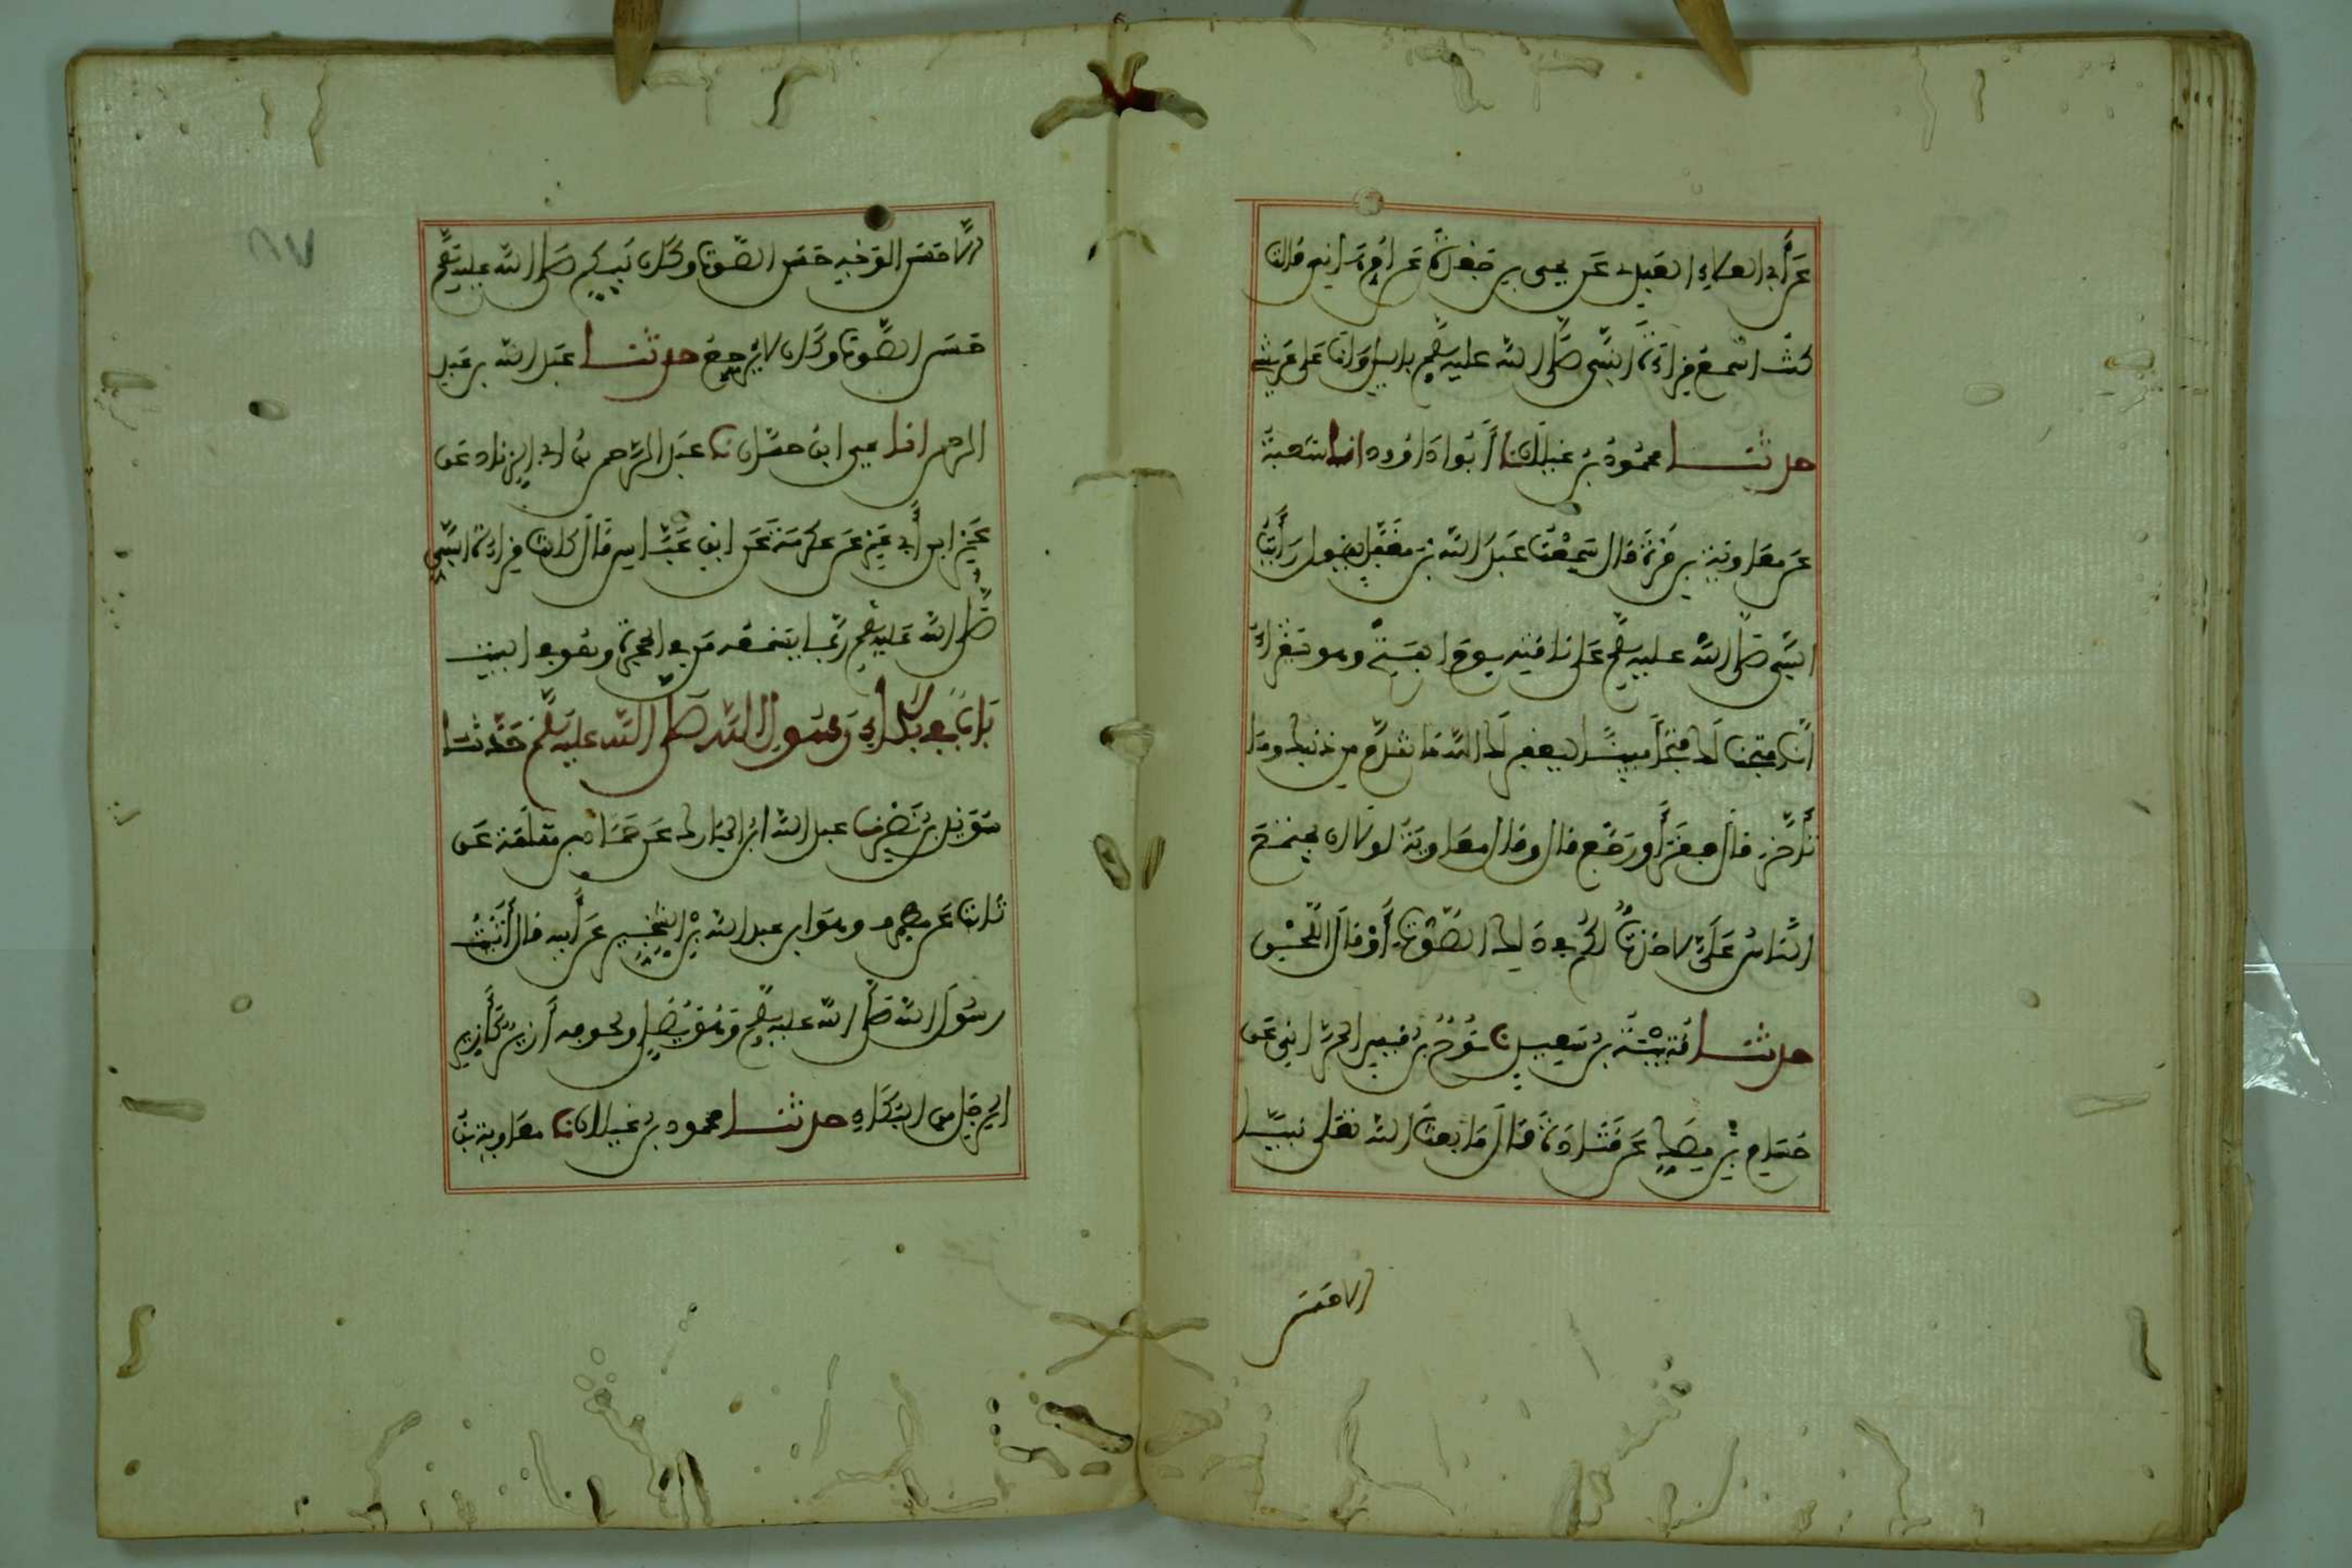 عن أبي العلاء العبدي عن يحيى بن جعدة عن أم هانئ قالت
كنت أسمع قراءة النبي صلى الله عليه وسلم بالليل وأنا على عريشي
حدثنا محمود بن غيلان نا أبو داوود انا شعبة
عن معاوية بن قرة قال سمعت عبد الله بن مغفل يقول رأيت
النبي صلى الله عليه وسلم على ناقته يوم الفتح وهو يقرأ
إنا فتحنا لك فتحا مبينا ليغفر لك الله ما تقدم من ذنبك وما
تأخر قال فقرأ ورجع قال وقال معاوية لولا أن يجتمع
الناس علي لأخذت لكم في ذلك الصوت أو قال اللحن
حدثنا قتيبة بن سعيد نا نوح بن قيس الحراني عن
حسام بن مصك عن قتادة قال ما بعث الله تعلى نبيا
الا حسن
الا حسن الوجه حسن الصوت وكان نبيكم صلى الله عليه وسلم
حسن الصوت وكان لا يرجع حدثنا عبد الله بن عبد
الرحمن انا يحيى ابن حسان نا عبد الرحمن بن أبي الزناد عن
عمرو ابن أبي عمرو عن عكرمة عن ابن عباس قال كانت قراءة النبي
صلى الله عليه وسلم ربما يسمعه من في الحجرة وهو في البيت
باب في بكاء رسول الله صلى الله عليه وسلم حدثنا
سويد بن نصر نا عبد الله ابن المبارك عن حماد بن سلمة عن
ثابت عن مطرف وهو ابن عبد الله بن الشخير عن أبيه قال أتيت
رسول الله صلى الله عليه وسلم وهو يصلي ولجوفه أزيز كأزيز
المرجل من البكاء حدثنا محمود بن غيلان نا معاوية بن